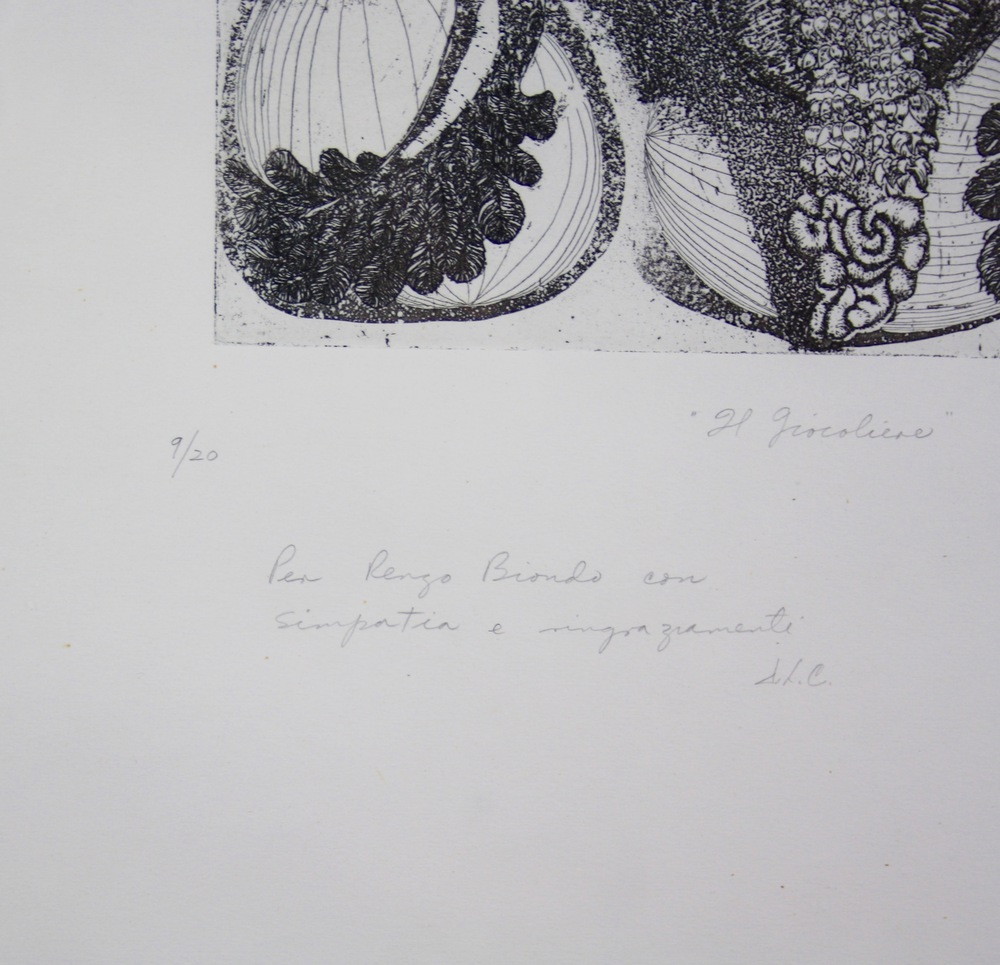 "Il Giocoliere"
9/20
Per Renzo Biondo con
simpatia e ringraziamenti
D.L.C.